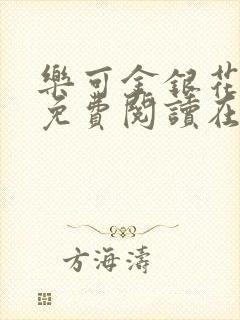 樂可金銀花
免費閱讀在
方海濤